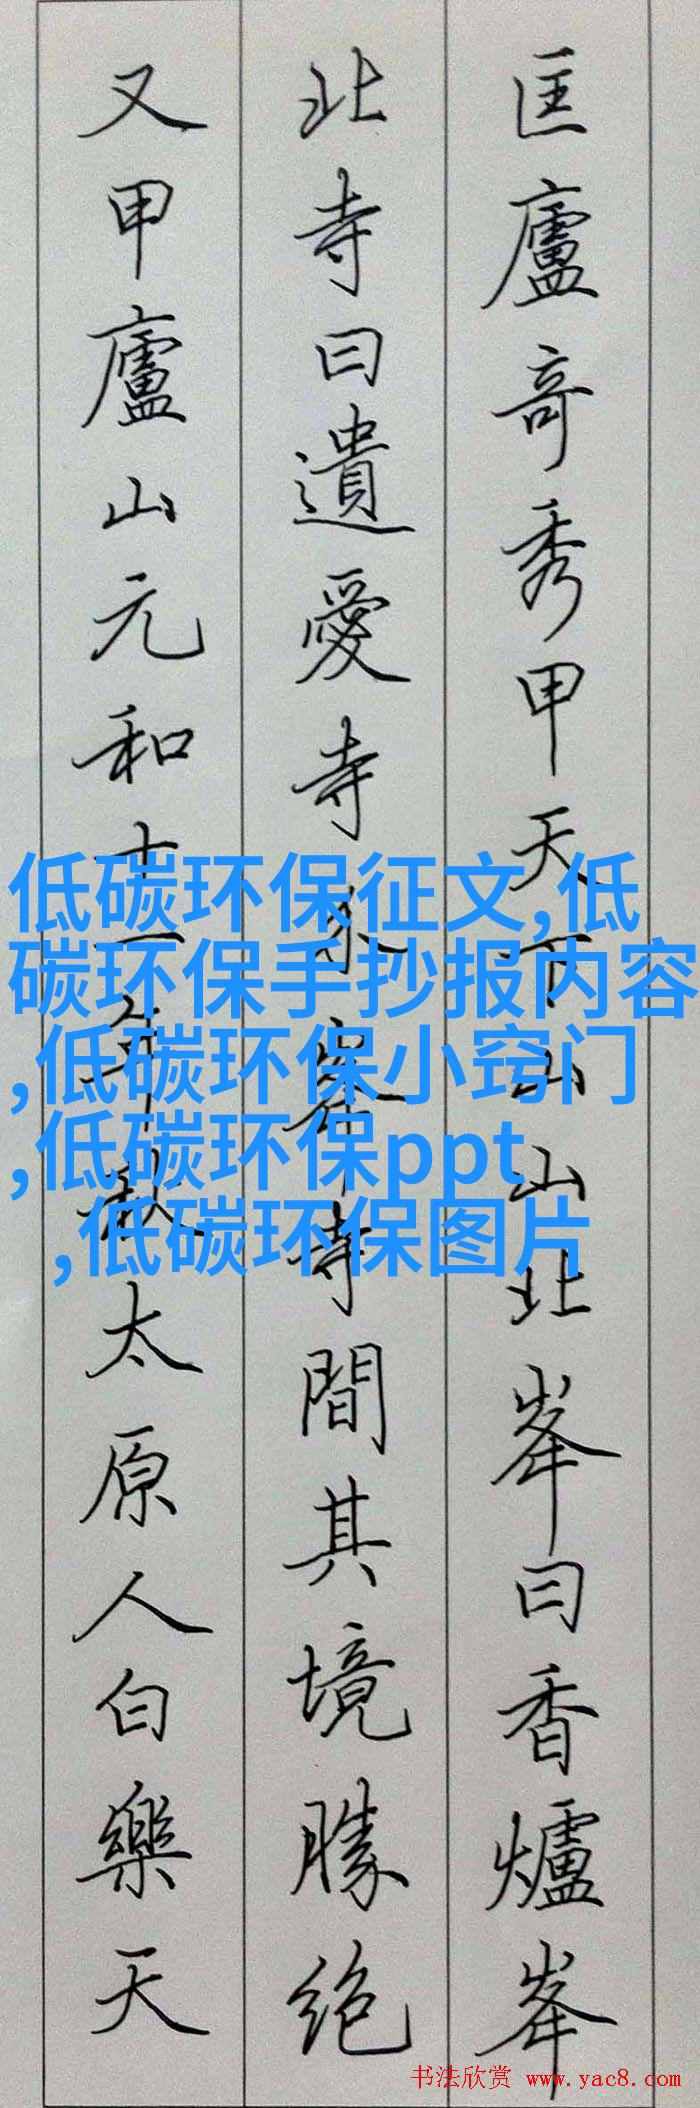 匡廬奇秀甲天下山山北峯曰香爐峯
北寺曰遺愛寺介峯寺間其境勝绝
又甲廬山元和十一年秋太原人白樂天
低碳环保征文,低
碳环保手抄报内容
,低碳环保小窍门
,低碳环保ppt
,低碳环保图片
书法欣赏 www.yac8.com